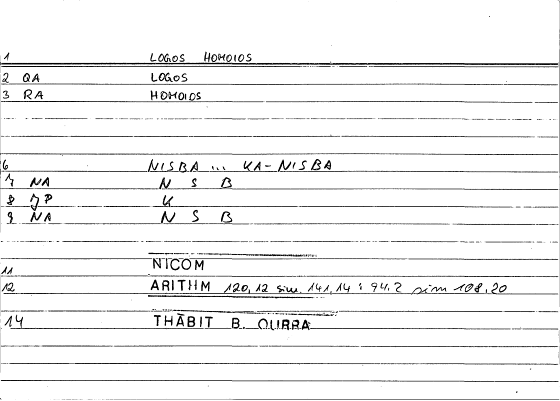 1 LOGOS HOMOIOS
2 QA LOGOS
3 RA HOMOIOS
6 NISBA ... KA-NISBA
7 NA N S B
8 JP K
9 NA N S B
11 NICOM
12 ARITHM 120,12 sim. 141,14 : 94.2 sim 108,20
14 THĀBIT B. QURRA